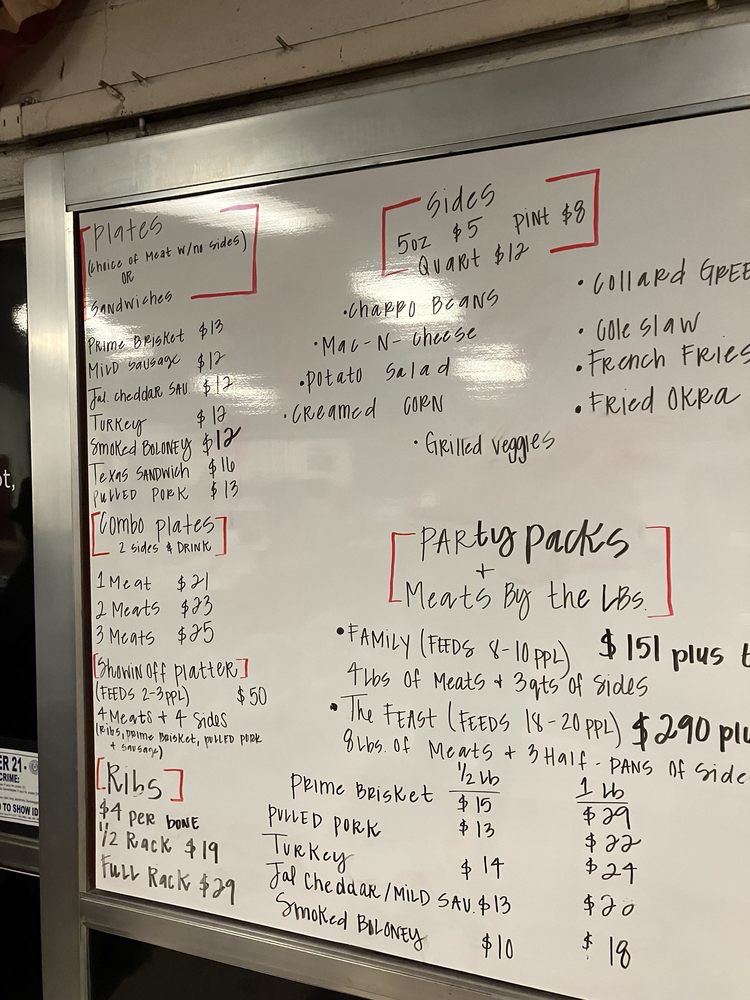 Plates
(Choice of Meat w/no sides)
OR
Sandwiches
Prime Brisket $13
Mild Sausage $12
Jal. cheddar SAU $12
Turkey $12
Smoked Boloney $12
Texas Sandwich $16
Pulled Pork $13
[Combo plates]
2 sides & DRINK
1 Meat $21
2 Meats $23
3 Meats $25
[Showin off platter]
(FEEDS 2-3ppl) $50
4 Meats + 4 Sides
(Ribs, prime Brisket, pulled pork
+ sausage)
[Ribs]
$4 per bone
1/2 Rack $19
Full Rack $29
Sides
5oz $5 pint $8
Quart $12
• Charro Beans
• Mac-N-Cheese
• Potato Salad
• Creamed Corn
• Grilled veggies
• Collard GREE
• Cole slaw
• French Fries
• Fried Okra
Party packs
+
Meats By the LBs.
• FAMILY (FEEDS 8-10 PPL) $151 plus t
4 lbs of Meats + 3 qts of Sides
• The Feast (FEEDS 18-20 PPL) $290 plu
8 lbs. of Meats + 3 Half-pans of Side
1/2 lb 1 lb
Prime Brisket $15 $29
Pulled Pork $13 $22
Turkey $14 $24
Jal Cheddar/Mild SAU. $13 $20
Smoked Boloney $10 $18
ot,
ER 21-
CRIME:
TO SHOW ID